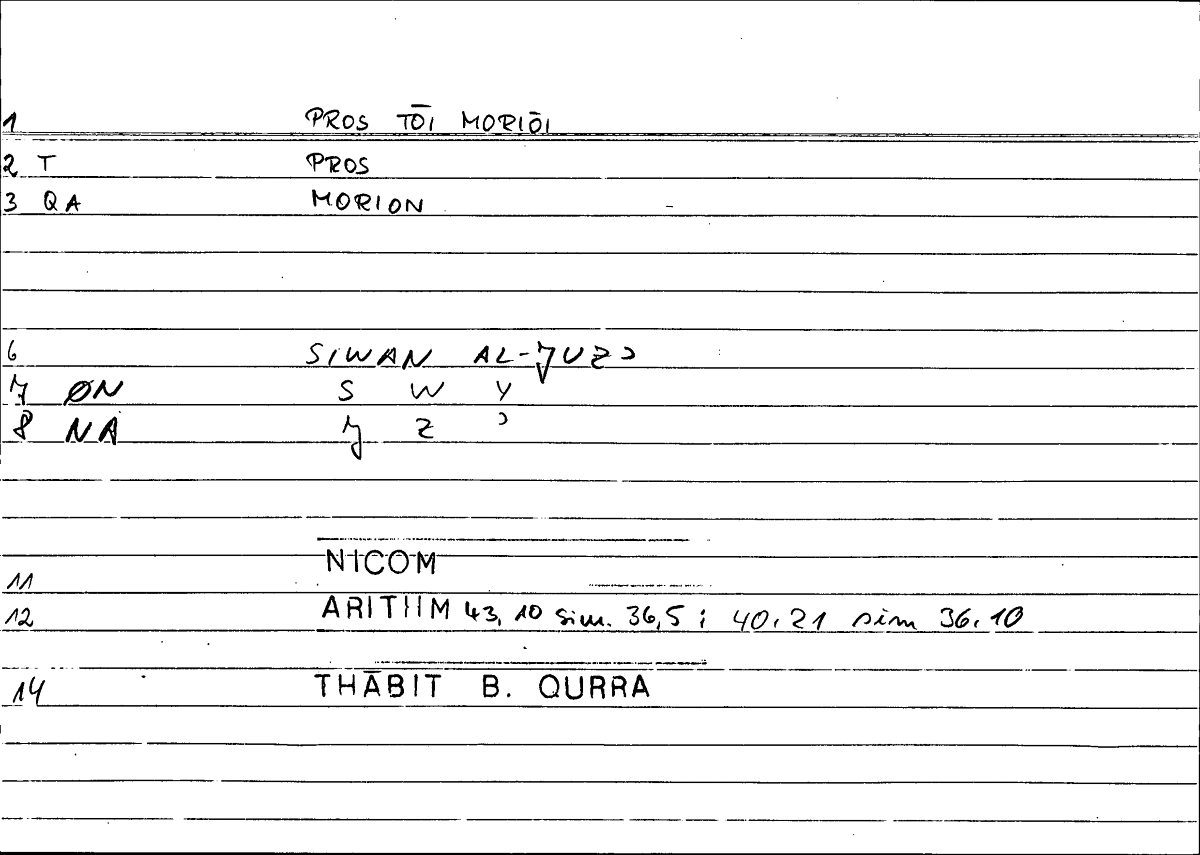 1 PROS TŌI MORIŌI
2 T PROS
3 QA MORION
6 SIWAN AL-JUZʾ
7 ØN S W Y
8 NA J Z ʾ
11 NICOM
12 ARITHM 43,10 sim. 36,5; 40,21 sim 36,10
14 THĀBIT B. QURRA